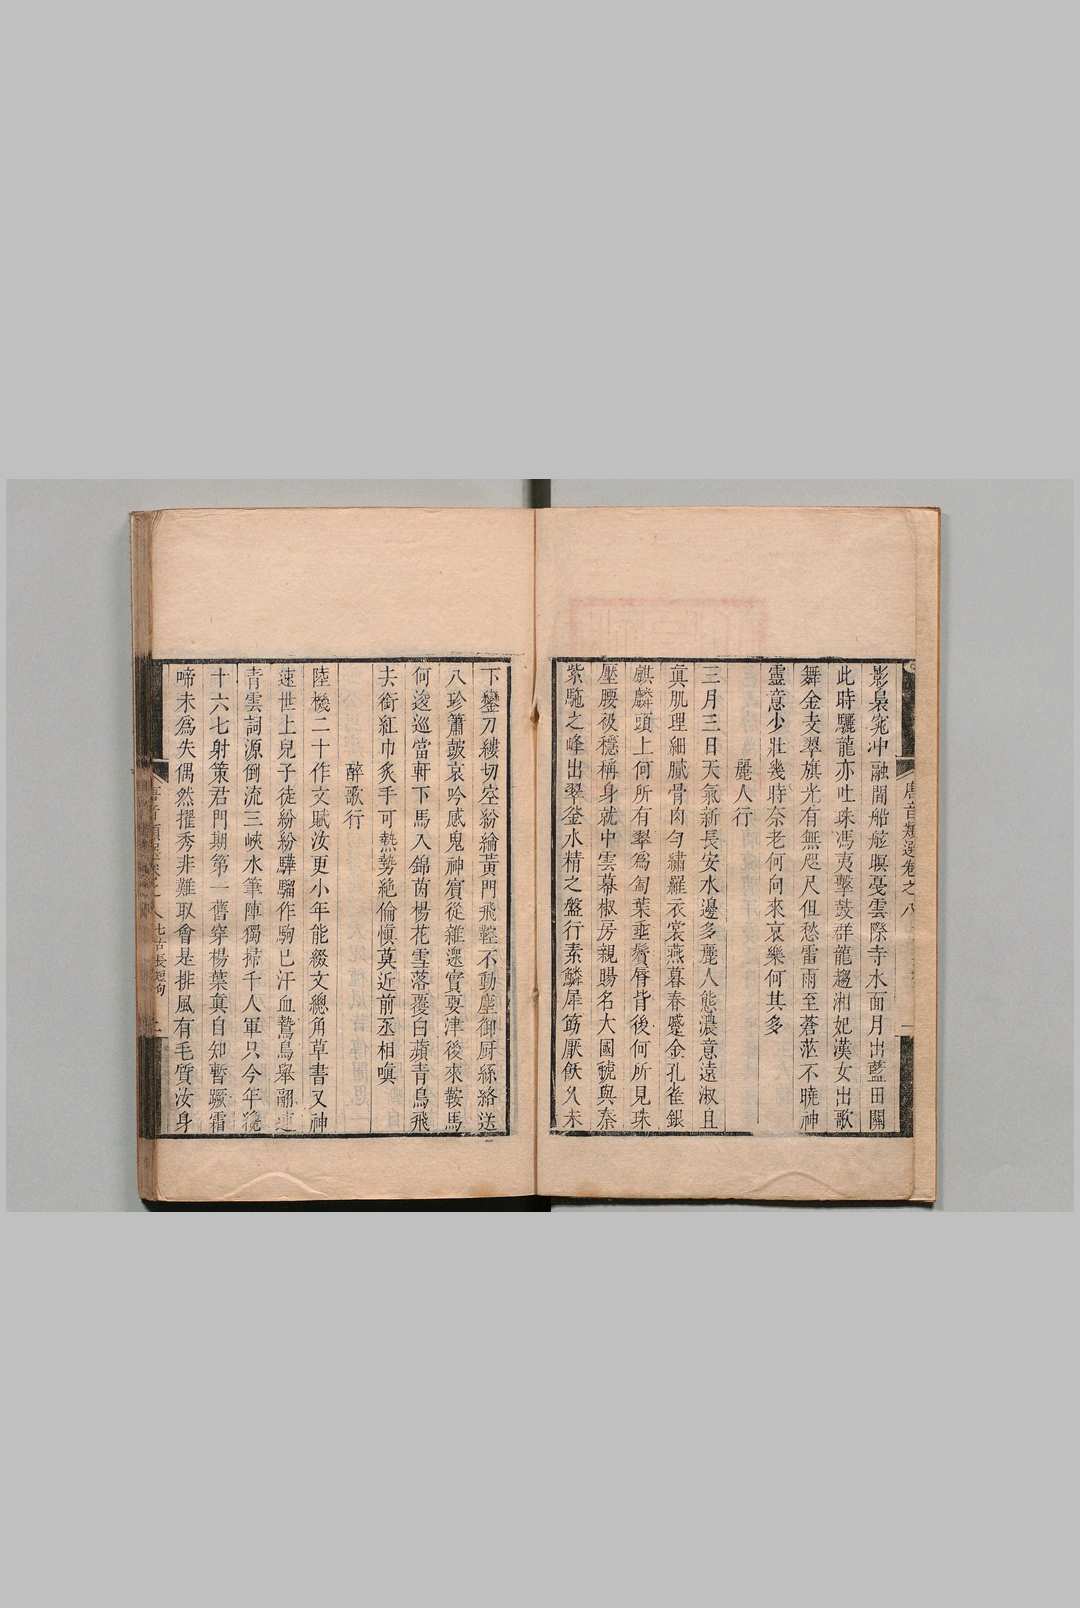 唐音類選卷之八
影裊窕沖融間船舷暝戛雲際寺水面月出藍田關
此時驪龍亦吐珠馮夷擊鼓群龍趨湘妃漢女出歌
舞金支翠旗光有無咫尺但愁雷雨至蒼茫不曉神
靈意少壯幾時奈老何向來哀樂何其多
麗人行
三月三日天氣新長安水邊多麗人態濃意遠淑且
眞肌理細膩骨肉勻繡羅衣裳燕暮春蹙金孔雀銀
麒麟頭上何所有翠爲㔩葉垂鬢脣背後何所見珠
壓腰衱穩稱身就中雲幕椒房親賜名大國虢與秦
紫駞之峰出翠釜水精之盤行素鱗犀筯厭飫久未
下鑾刀縷切空紛綸黃門飛鞚不動塵御厨絲絡送
八珍簫皷哀吟感鬼神賓從雜遝實要津後來鞍馬
何逡巡當軒下馬入錦茵楊花雪落覆白蘋青鳥飛
去銜紅巾炙手可熱勢絶倫愼莫近前丞相嗔
醉歌行
陸機二十作文賦汝更小年能綴文總角草書又神
速世上兒子徒紛紛驊騮作駒已汗血鷙鳥舉翮連
青雲詞源倒流三峽水筆陣獨掃千人軍只今年纔
十六七射策君門期第一舊穿楊葉眞自知暫蹶霜
啼未爲失偶然擢秀非難取會是排風有毛質汝身
唐音類選卷之八 七古長短句 二